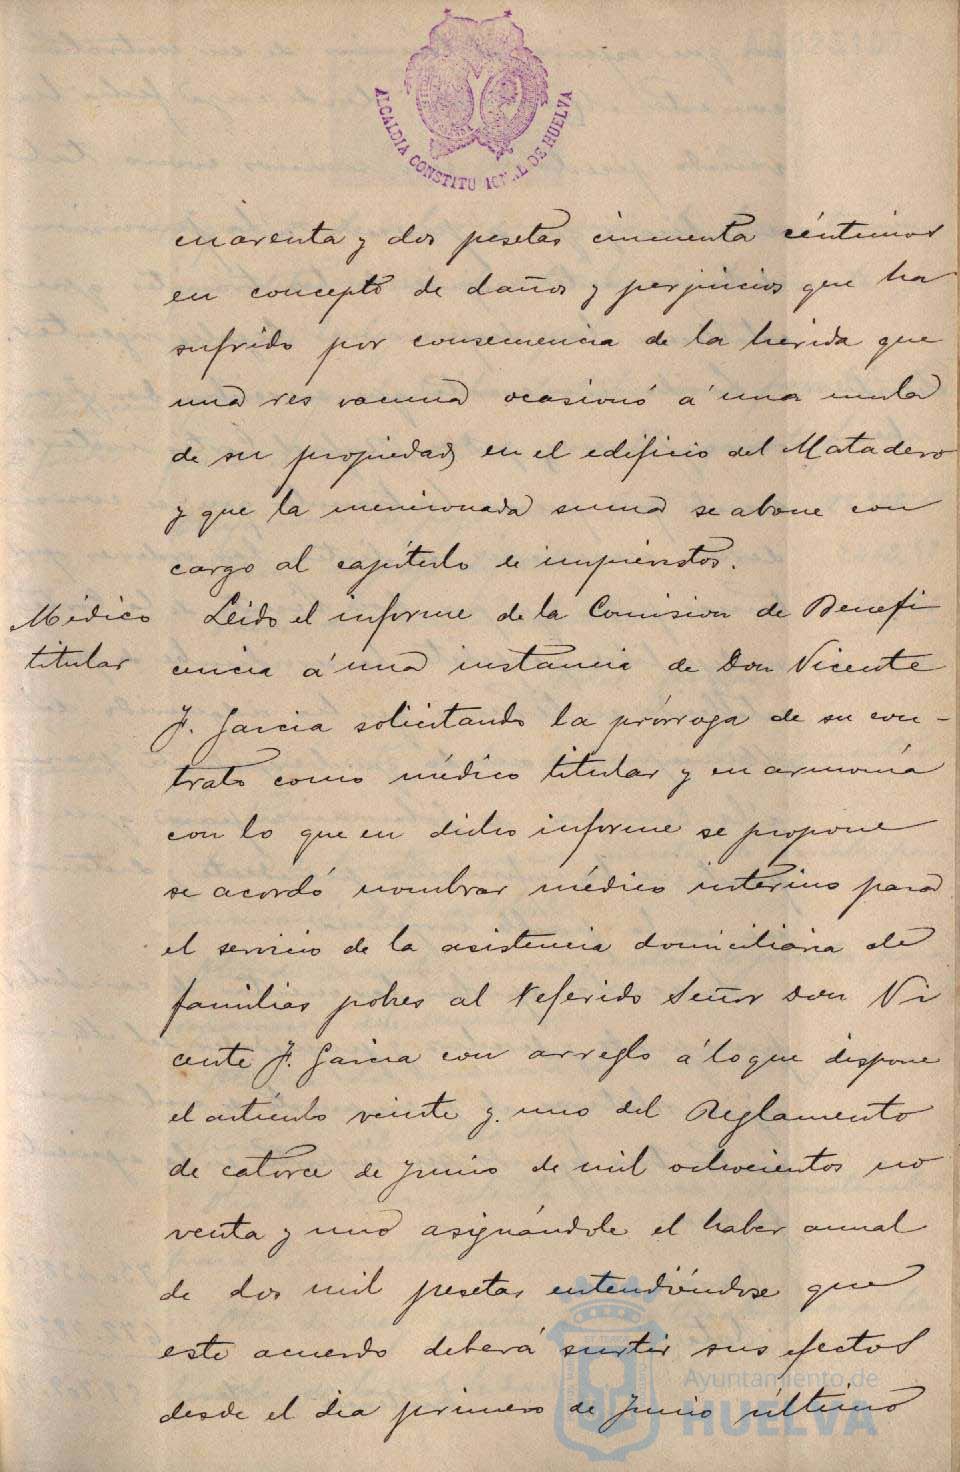 ALCALDIA CONSTITUCIONAL DE HUELVA
cuarenta y dos pesetas cincuenta céntimos
en concepto de daños y perjuicios que ha
sufrido por consecuencia de la herida que
una res vacuna ocasionó á una mula
de su propiedad en el edificio del Matadero
y que la mencionada suma se abone con
cargo al capítulo de imprevistos.
Médico
titular
Leido el informe de la Comision de Benefi
cencia á una instancia de Don Vicente
J. Garcia solicitando la prórroga de su con-
trato como médico titular y en armonía
con lo que en dicho informe se propone
se acordó nombrar médico interino para
el servicio de la asistencia domiciliaria de
familias pobres al referido Señor Don Vi
cente J. Garcia con arreglo á lo que dispone
el artículo veinte y uno del Reglamento
de catorce de Junio de mil ochocientos no
venta y uno asignándole el haber anual
de dos mil pesetas entendiéndose que
este acuerdo deberá surtir sus efectos
desde el dia primero de Junio último
Ayuntamiento de
HUELVA